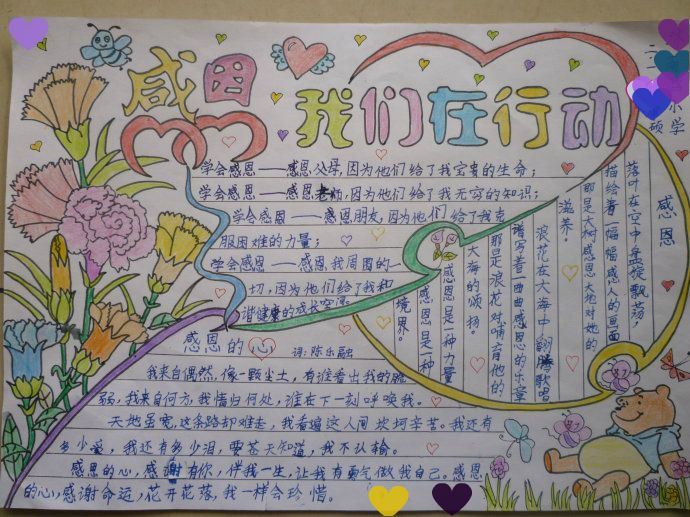 感恩
我们在行动
小学
硕
学会感恩——感恩父母,因为他们给了我宝贵的生命;
学会感恩——感恩老师,因为他们给了我无穷的知识;
学会感恩——感恩朋友,因为他们给了我克
服困难的力量;
学会感恩——感恩我周围的一
切,因为他们给了我和
谐健康的成长空间
感恩
落叶在空中盘旋飘荡,
描绘着一幅幅感人的画面
那是大树感恩大地对她的
滋养。
浪花在大海中翻腾歌唱
谱写着一曲曲感恩的乐章
那是浪花对哺育他的
大海的颂扬。
感恩是一种力量
感恩是一种
境界。
感恩的心 词:陈乐融
我来自偶然,像一颗尘土,有谁看出我的脆
弱,我来自何方,我情归何处,谁在下一刻呼唤我。
天地虽宽,这条路却难走,我看遍这人间坎坷辛苦。我还有
多少爱,我还有多少泪,要苍天知道,我不认输。
感恩的心,感谢有你,伴我一生,让我有勇气做我自己。感恩
的心,感谢命运,花开花落,我一样会珍惜。